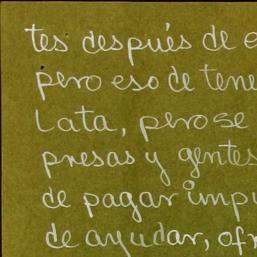 tes después de e
pero eso de tene
Lata, pero se
presas y gentes
de pagar impu
de ayudar, ofr